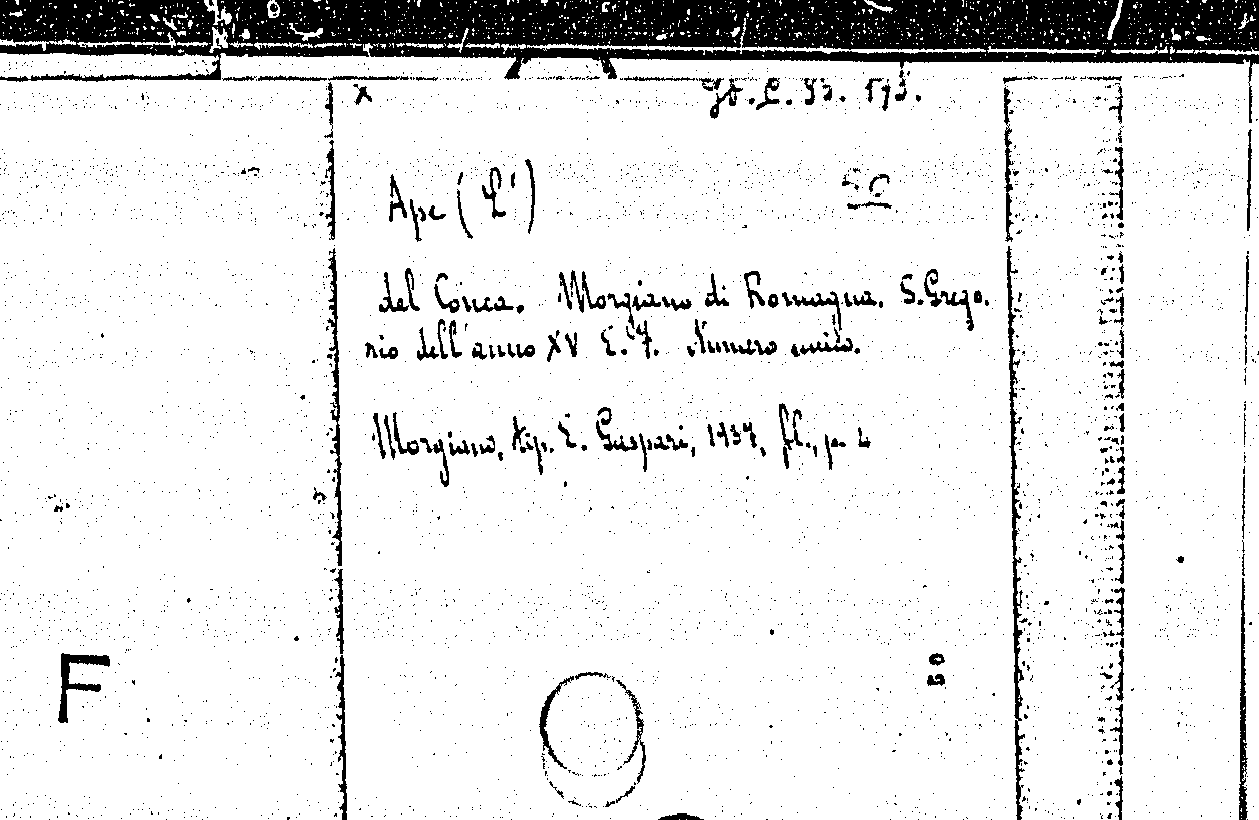 x
Ape (L')
50
del Conca. Morgiano di Romagna. S. Grego.
rio dell'anno XV E. F. Numero unico.
Morgiano, tip. E. Gaspari, 1937, fl., p. 4
50
F